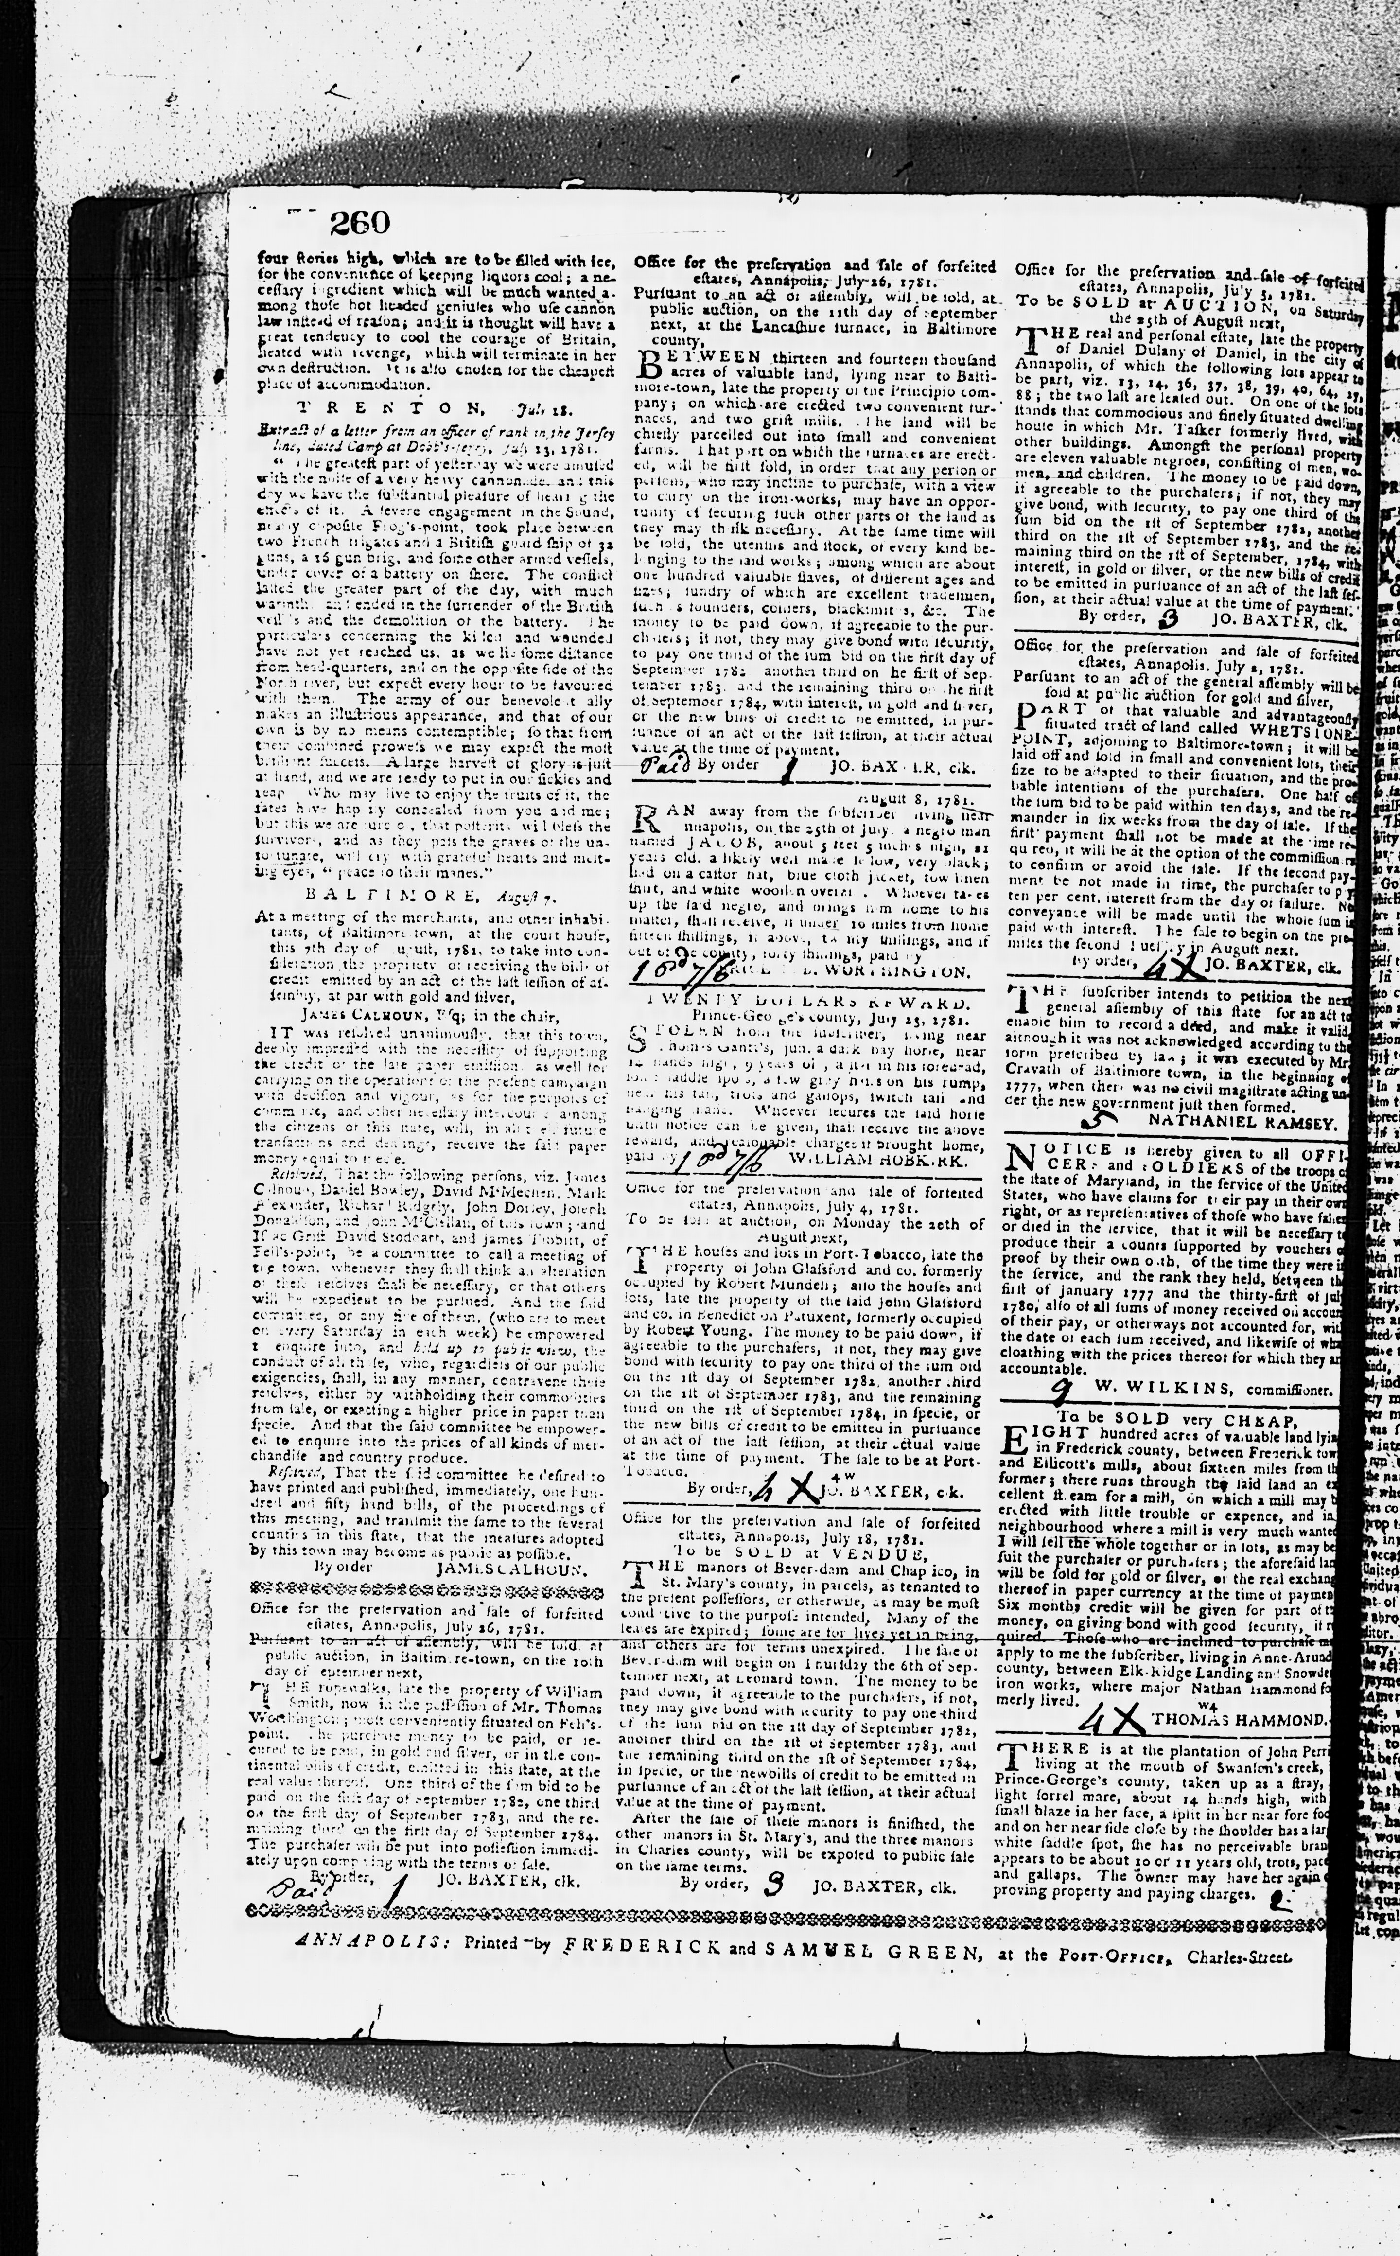 260
four stories high, which are to be filled with ice,
for the convenience of keeping liquors cool; a ne-
cessary ingredient which will be much wanted a-
mong those hot headed geniuses who use cannon
law instead of reason; and it is thought will have a
great tendency to cool the courage of Britain,
heated with revenge, which will terminate in her
own destruction. It is also chosen for the cheapest
place of accommodation.
TRENTON, July 18.
Extract of a letter from an officer of rank in the Jersey
line, dated Camp at Dobb's-ferry, July 13, 1781.
" The greatest part of yesterday we were amused
with the noise of a very heavy cannonade, and this
day we have the substantial pleasure of hearing the
effects of it. A severe engagement in the Sound,
nearly opposite Frog's-point, took place between
two French frigates and a British guard ship of 32
guns, a 16 gun brig, and some other armed vessels,
under cover of a battery on shore. The conflict
lasted the greater part of the day, with much
warmth, and ended in the surrender of the British
vessels and the demolition of the battery. The
particulars concerning the killed and wounded
have not yet reached us, as we lie some distance
from head-quarters, and on the opposite side of the
North river, but expect every hour to be favoured
with them. The army of our benevolent ally
makes an illustrious appearance, and that of our
own is by no means contemptible; so that from
their combined prowess we may expect the most
brilliant success. A large harvest of glory is just
at hand, and we are ready to put in our sickles and
reap. Who may live to enjoy the fruits of it, the
fates have happily concealed from you and me;
but this we are sure of, that posterity will bless the
survivors, and as they pass the graves of the un-
fortunate, will cry with grateful hearts and melt-
ing eyes, " peace to their manes."
BALTIMORE, August 7.
At a meeting of the merchants, and other inhabi-
tants, of Baltimore town, at the court house,
this 7th day of August, 1781, to take into con-
sideration the propriety of receiving the bills of
credit emitted by an act of the last session of as-
sembly, at par with gold and silver,
JAMES CALHOUN, Esq; in the chair,
IT was resolved unanimously, that this town,
deeply impressed with the necessity of supporting
the credit of the late paper emission, as well for
carrying on the operations of the present campaign
with decision and vigour, as for the purposes of
commerce, and other necessary intercourse among
the citizens of this state, will, in all their future
transactions and dealings, receive the said paper
money equal to specie.
Resolved, That the following persons, viz. James
Calhoun, Daniel Bowley, David McMechen, Mark
Alexander, Richard Ridgely, John Dorsey, Joseph
Donaldson, and John McClellan, of this town; and
Isaac Grist, David Stodart, and James
Fell's-point, be a committee to call a meeting of
the town, whenever they shall think an alteration
of their resolves shall be necessary, or that others
will be expedient to be pursued. And the said
committee, or any five of them, (who are to meet
on every Saturday in each week) be empowered
to enquire into, and hold up to public view, the
conduct of all those, who, regardless of our public
exigencies, shall, in any manner, contravene these
resolves, either by withholding their commodities
from sale, or exacting a higher price in paper than
specie. And that the said committee be empower-
ed to enquire into the prices of all kinds of mer-
chandise and country produce.
Resolved, That the said committee be desired to
have printed and published, immediately, one hun-
dred and fifty hand bills, of the proceedings of
this meeting, and transmit the same to the several
counties in this state, that the measures adopted
by this town may become as public as possible.
By order JAMES CALHOUN.
Office for the preservation and sale of forfeited
estates, Annapolis, July 26, 1781.
Pursuant to an act of assembly, will be sold, at
public auction, in Baltimore-town, on the 10th
day of September next,
THE ropewalks, late the property of William
Smith, now in the possession of Mr. Thomas
Worthington; most conveniently situated on Fell's-
point. The purchase money to be paid, or se-
cured to be paid, in gold and silver, or in the con-
tinental bills of credit, emitted in this state, at the
real value thereof. One third of the sum bid to be
paid on the first day of September 1782, one third
on the first day of September 1783, and the re-
maining third on the first day of September 1784.
The purchaser will be put into possession immedi-
ately upon complying with the terms of sale.
By order, JO. BAXTER, clk.
Paid 1
Office for the preservation and sale of forfeited
estates, Annapolis, July 26, 1781.
Pursuant to an act of assembly, will be sold, at
public auction, on the 11th day of September
next, at the Lancashire furnace, in Baltimore
county,
BETWEEN thirteen and fourteen thousand
acres of valuable land, lying near to Balti-
more-town, late the property of the Principio com-
pany; on which are erected two convenient fur-
naces, and two grist mills. The land will be
chiefly parcelled out into small and convenient
farms. That part on which the furnaces are erect-
ed, will be first sold, in order that any person or
persons, who may incline to purchase, with a view
to carry on the iron-works, may have an oppor-
tunity of securing such other parts of the land as
they may think necessary. At the same time will
be sold, the utensils and stock, of every kind be-
longing to the said works; among which are about
one hundred valuable slaves, of different ages and
sizes; sundry of which are excellent tradesmen,
such as founders, coiners, blacksmiths, &c. The
money to be paid down, if agreeable to the pur-
chasers; if not, they may give bond with security,
to pay one third of the sum bid on the first day of
September 1782 another third on the first of Sep-
tember 1783, and the remaining third on the first
of September 1784, with interest, in gold and silver,
or the new bills of credit to be emitted, in pur-
suance of an act of the last session, at their actual
value at the time of payment.
Paid By order 1 JO. BAXTER, clk.
August 8, 1781.
RAN away from the subscriber living near
Annapolis, on the 25th of July, a negro man
named JACOB, about 5 feet 5 inches high, 21
years old, a likely well made fellow, very black;
had on a castor hat, blue cloth jacket, tow linen
shirt, and white woollen overalls. Whoever takes
up the said negro, and brings him home to his
master, shall receive, if under 10 miles from home
fifteen shillings, if above, twenty shillings, and if
out of the county, forty shillings, paid by
1 Pd 7/6 WORTHINGTON.
TWENTY DOLLARS REWARD.
Prince-George's county, July 23, 1781.
STOLEN from the subscriber, living near
Thomas Gantt's, jun. a dark bay horse, near
14 hands high, 9 years old, a star in his forehead,
some saddle spots, a few grey hairs on his rump,
near his tail, trots and gallops, switch tail and
hanging mane. Whoever secures the said horse
until notice can be given, shall receive the above
reward, and reasonable charges if brought home,
paid by 1 Pd 7/6 WILLIAM HOBKIRK.
Office for the preservation and sale of forfeited
estates, Annapolis, July 4, 1781.
To be sold at auction, on Monday the 20th of
August next,
THE houses and lots in Port-Tobacco, late the
property of John Glassford and co. formerly
occupied by Robert Mundell; also the houses and
lots, late the property of the said John Glassford
and co. in Benedict on Patuxent, formerly occupied
by Robert Young. The money to be paid down, if
agreeable to the purchasers, if not, they may give
bond with security to pay one third of the sum bid
on the 1st day of September 1782, another third
on the 1st of September 1783, and the remaining
third on the 1st of September 1784, in specie, or
the new bills of credit to be emitted in pursuance
of an act of the last session, at their actual value
at the time of payment. The sale to be at Port-
Tobacco. 4w
By order, 4X JO. BAXTER, clk.
Office for the preservation and sale of forfeited
estates, Annapolis, July 18, 1781.
To be SOLD at VENDUE,
THE manors of Bever-dam and Chaptico, in
St. Mary's county, in parcels, as tenanted to
the present possessors, or otherwise, as may be most
conducive to the purpose intended. Many of the
leases are expired; some are for lives yet in being,
and others are for terms unexpired. The sale of
Bever-dam will begin on Thursday the 6th of Sep-
tember next, at Leonard town. The money to be
paid down, if agreeable to the purchasers, if not,
they may give bond with security to pay one-third
of the sum bid on the 1st day of September 1782,
another third on the 1st of September 1783, and
the remaining third on the 1st of September 1784,
in specie, or the new bills of credit to be emitted in
pursuance of an act of the last session, at their actual
value at the time of payment.
After the sale of these manors is finished, the
other manors in St. Mary's, and the three manors
in Charles county, will be exposed to public sale
on the same terms.
By order, 3 JO. BAXTER, clk.
Office for the preservation and sale of forfeited
estates, Annapolis, July 5, 1781.
To be SOLD at AUCTION, on Saturday
the 25th of August next,
THE real and personal estate, late the property
of Daniel Dulany of Daniel, in the city of
Annapolis, of which the following lots appear to
be part, viz. 13, 14, 36, 37, 38, 39, 40, 64,
88; the two last are leased out. On one of the lots
stands that commodious and finely situated dwelling
house in which Mr. Tasker formerly lived, with
other buildings. Amongst the personal property
are eleven valuable negroes, consisting of men, wo-
men, and children. The money to be paid down,
if agreeable to the purchasers; if not, they may
give bond, with security, to pay one third of the
sum bid on the 1st of September 1782, another
third on the 1st of September 1783, and the re-
maining third on the 1st of September, 1784, with
interest, in gold or silver, or the new bills of credit
to be emitted in pursuance of an act of the last ses-
sion, at their actual value at the time of payment.
By order, 3 JO. BAXTER, clk.
Office for the preservation and sale of forfeited
estates, Annapolis. July 2, 1781.
Pursuant to an act of the general assembly will be
sold at public auction for gold and silver,
PART of that valuable and advantageously
situated tract of land called WHETSTONE-
POINT, adjoining to Baltimore-town; it will be
laid off and sold in small and convenient lots, their
size to be adapted to their situation, and the pro-
bable intentions of the purchasers. One half of
the sum bid to be paid within ten days, and the re-
mainder in six weeks from the day of sale. If the
first payment shall not be made at the time re-
quired, it will be at the option of the commissioners
to confirm or avoid the sale. If the second pay-
ment be not made in time, the purchaser to pay
ten per cent. interest from the day of failure. No
conveyance will be made until the whole sum is
paid with interest. The sale to begin on the pre-
mises the second Tuesday in August next.
By order, 4X JO. BAXTER, clk.
THE subscriber intends to petition the next
general assembly of this state for an act to
enable him to record a deed, and make it valid,
although it was not acknowledged according to the
form prescribed by law; it was executed by Mr.
Cravath of Baltimore town, in the beginning of
1777, when there was no civil magistrate acting un-
der the new government just then formed.
5 NATHANIEL RAMSEY.
NOTICE is hereby given to all OFFI-
CERS and SOLDIERS of the troops of
the state of Maryland, in the service of the United
States, who have claims for their pay in their own
right, or as representatives of those who have fallen
or died in the service, that it will be necessary to
produce their accounts supported by vouchers or
proof by their own oath, of the time they were in
the service, and the rank they held, between the
first of january 1777 and the thirty-first of july
1780, also of all sums of money received on account
of their pay, or otherways not accounted for, with
the date of each sum received, and likewise of what
cloathing with the prices thereof for which they are
accountable.
9 W. WILKINS, commissioner.
To be SOLD very CHEAP,
EIGHT hundred acres of valuable land lying
in Frederick county, between Frederick town
and Ellicott's mills, about sixteen miles from the
former; there runs through the said land an ex-
cellent stream for a mill, on which a mill may be
erected with little trouble or expence, and in a
neighbourhood where a mill is very much wanted
I will sell the whole together or in lots, as may best
suit the purchaser or purchasers; the aforesaid land
will be sold for gold or silver, or the real exchange
thereof in paper currency at the time of payment
Six months credit will be given for part of the
money, on giving bond with good security, if re-
quired. Those who are inclined to purchase may
apply to me the subscriber, living in Anne-Arundel
county, between Elk-Ridge Landing and Snowden's
iron works, where major Nathan Hammond for-
merly lived. W4
4X THOMAS HAMMOND.
THERE is at the plantation of John Perri
living at the mouth of Swanson's creek,
Prince-George's county, taken up as a stray,
light sorrel mare, about 14 hands high, with
small blaze in her face, a split in her near fore foot
and on her near side close by the shoulder has a large
white saddle spot, she has no perceivable brand
appears to be about 10 or 11 years old, trots, paces
and gallops. The owner may have her again
proving property and paying charges. 2
ANNAPOLIS: Printed by FREDERICK and SAMUEL GREEN, at the POST-OFFICE, Charles-Street.